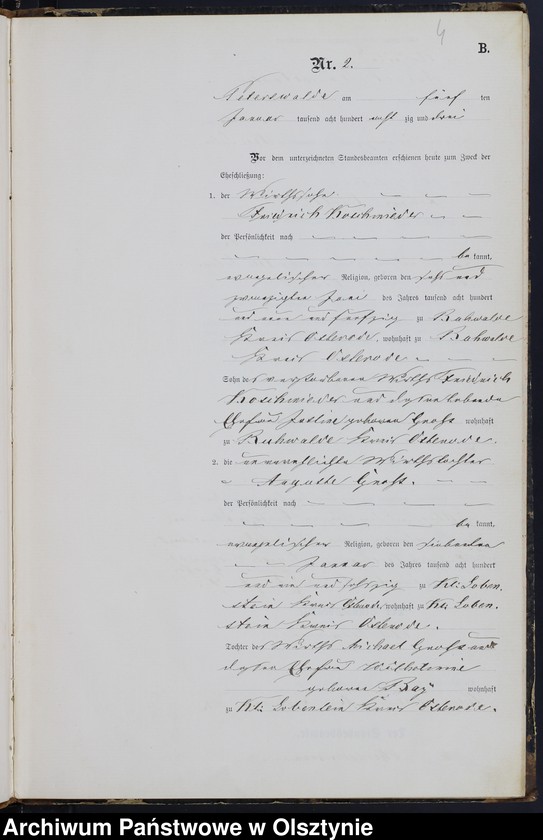 4
B.
Nr. 2.
Peterswalde am fünf ten
Januar tausend acht hundert acht zig und drei
Vor dem unterzeichneten Standesbeamten erschienen heute zum Zweck der
Eheschließung:
1. der Wirthssohn
Friedrich Koschmieder
der Persönlichkeit nach
be kannt,
evangelischer Religion, geboren den sechs und
zwanzigsten Juni des Jahres tausend acht hundert
und fünfzig zu Ruhwalde
Kreis Osterode, wohnhaft zu Ruhwalde
Kreis Osterode
Sohn des verstorbenen Wirths Friedrich
Koschmieder und dessen lebende
Ehefrau Justine geborenen Groß wohnhaft
zu Ruhwalde Kreis Osterode.
2. die unverehelichte Wirthstochter
Auguste Groß.
der Persönlichkeit nach
be kannt,
evangelischer Religion, geboren den siebenten
Januar des Jahres tausend acht hundert
und ein und sechszig zu Kl: Loben-
stein Kreis Osterode, wohnhaft zu Kl: Loben-
stein Kreis Osterode.
Tochter des Wirths Michael Groß und
dessen Ehefrau Wilhelmine
geborene wohnhaft
zu Kl: Lobenstein Kreis Osterode.
Archiwum Państwowe w Olsztynie